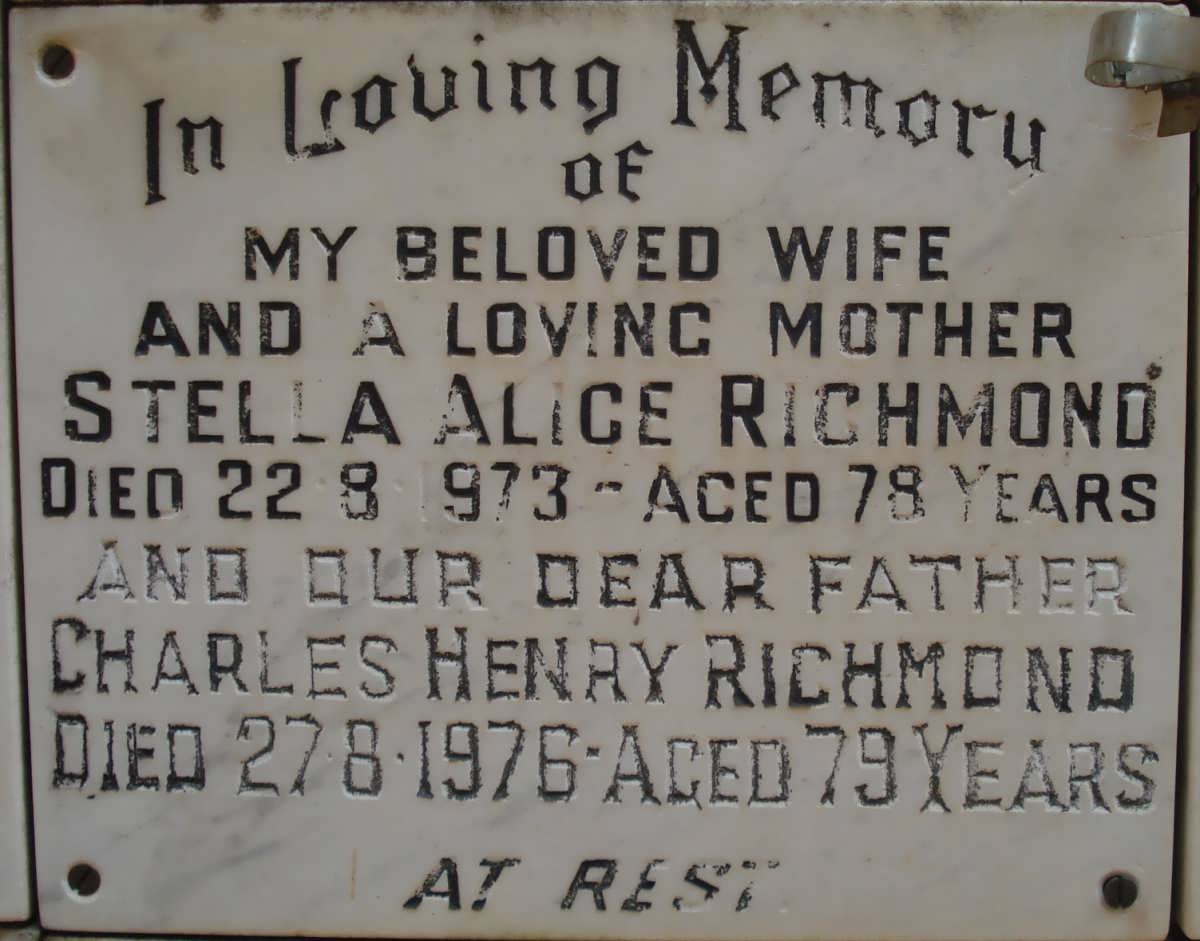 In Loving Memory
of
MY BELOVED WIFE
AND A LOVING MOTHER
STELLA ALICE RICHMOND
DIED 22·8·1973 - AGED 78 YEARS
AND OUR DEAR FATHER
CHARLES HENRY RICHMOND
DIED 27·8·1976 - AGED 79 YEARS
AT REST